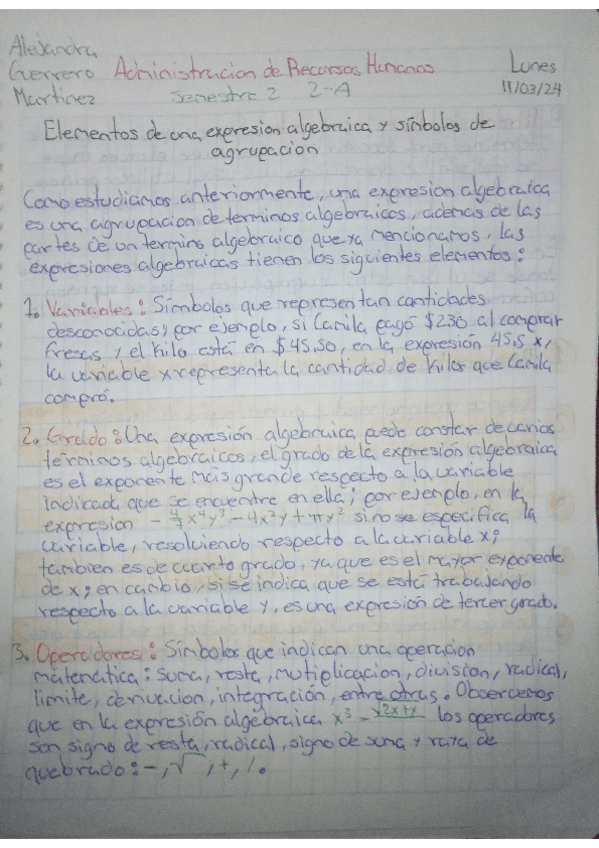 Alejandra
Guerrero Administracion de Recursos Humanos Lunes
Martinez Semestre 2 2-A 11/03/24
Elementos de una expresion algebraica y símbolos de
agrupacion
Como estudiamos anteriormente, una expresion algebraica
es una agrupacion de terminos algebraicos, ademas de las
partes de un termino algebraico que ya mencionamos, las
expresiones algebraicas tienen los siguientes elementos:
1. Variables: Símbolos que representan cantidades
desconocidas; por ejemplo, si Camila pagó $230 al comprar
fresas y el kilo está en $45.50, en la expresión 45.5 x,
la variable x representa la cantidad de kilos que Camila
compró.
2. Grado: Una expresión algebraica puede constar de varios
términos algebraicos, el grado de la expresión algebraica
es el exponente más grande respecto a la variable
indicada que se encuentre en ella; por ejemplo, en la
expresion x⁴y³ - 4x²y + πy² si no se especifica la
variable, resolviendo respecto a la variable x;
tambien es de cuarto grado, ya que es el mayor exponente
de x; en cambio, si se indica que se está trabajando
respecto a la variable y, es una expresión de tercer grado.
3. Operadores: Símbolos que indican una operacion
matemática: suma, resta, mutiplicacion, division, radical,
limite, derivacion, integración, entre otras. Observemos
que en la expresión algebraica x³ - √2x+y los operadores
son signo de resta, radical, signo de suma y raya de
quebrado: -, √ , +, /.